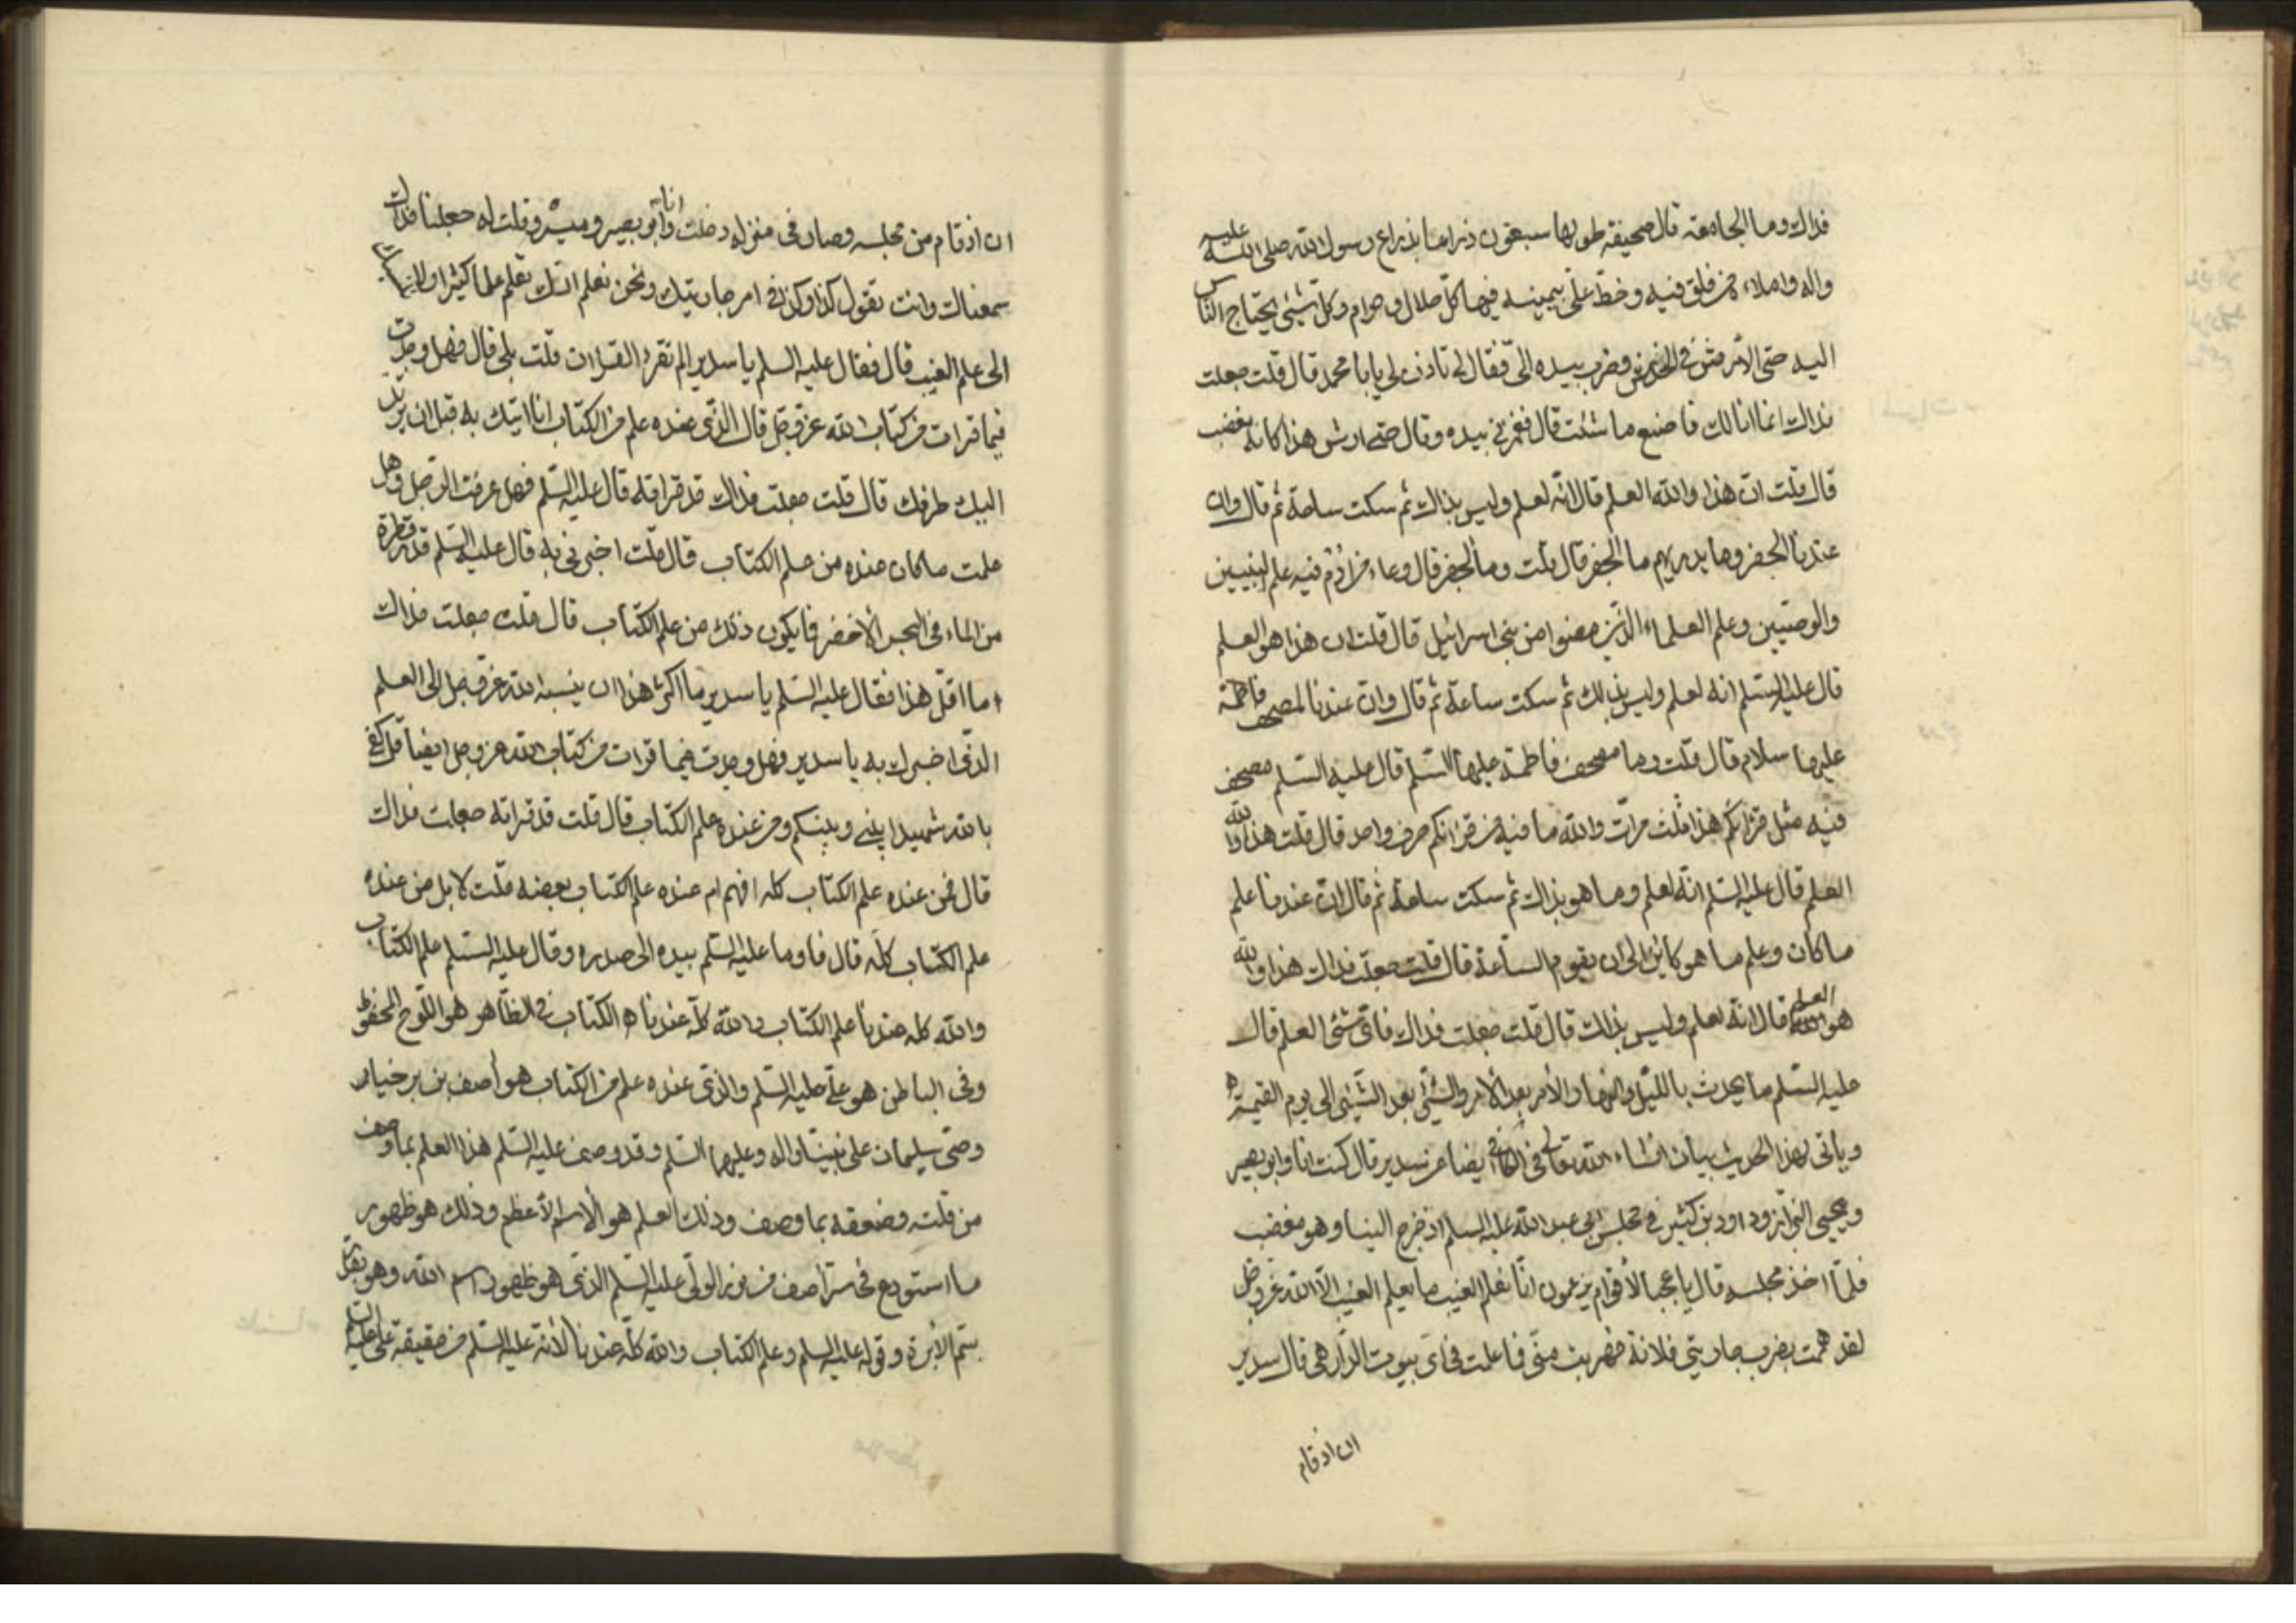 فداك وما الجامعة قال صحيفة طولها سبعون ذراعا بذراع رسول الله صلى الله عليه
واله واملاء من فلق فيه وخط علي بيمينه فيها كل حلال وحرام وكل شيئ يحتاج الناس
اليه حتى الأرش في الخدش وضرب بيده الى فقال لي تاذن لي يابا محمد قال قلت جعلت
فداك انما انا لك فاصنع ما شئت قال فغمزني بيده وقال حتى ارش هذا كانه مغضب
قال قلت ان هذا والله العلم قال انه لعلم وليس بذاك ثم سكت ساعة ثم قال وان
عندنا الجفر وما يدريهم ما الجفر قال قلت وما الجفر قال وعاء من ادم فيه علم النبيين
والوصيين وعلم العلماء الذين مضوا من بني اسرائيل قال قلت ان هذا هو العلم
قال عليه السلم انه لعلم وليس بذلك ثم سكت ساعة ثم قال وان عندنا لمصحف فاطمة
عليها سلام قال قلت وما مصحف فاطمة عليها السلم قال عليه السلم مصحف
فيه مثل قرانكم هذا ثلث مرات والله ما فيه من قرانكم حرف واحد قال قلت هذا والله
العلم قال عليه السلم انه لعلم وما هو بذاك ثم سكت ساعة ثم قال ان عندنا علم
ما كان وعلم ما هو كاين الى ان يقوم الساعة قال قلت جعلت فداك هذا والله
هو العلم قال انه لعلم وليس بذلك قال قلت جعلت فداك فاي شئ العلم قال
عليه السلم ما يحدث بالليل والنهار والأمر بعد الأمر والشئ بعد الشيئ الى يوم القيمة ه
وياتى لهذا الحديث بيان انشاء الله تعالى في الكافي ايضا عن سدير قال كنت انا وابو بصير
ويحيى البزاز وداود بن كثير في مجلس ابي عبد الله عليه السلم اذ خرج الينا وهو مغضب
فلما اخذ مجلسه قال يا عجبا لأقوام يزعمون انا نعلم الغيب ما يعلم الغيب الا الله عز وجل
لقد هممت بضرب جاريتي فلانة فهربت مني فما علمت في اي بيوت الدار هي قال سدير
ان اذ قام
ان اذ قام من مجلسه وصار في منزله دخلت انا وابو بصير وميسر وقلت له جعلنا فداك
سمعناك وانت تقول كذا وكذا في امر جاريتك ونحن نعلم انك تعلم علما كثيرا ولا ننسبك
الى علم الغيب قال فقال عليه السلم يا سدير الم تقرء القران قلت بلى قال فهل وجدت
فيما قرات من كتاب الله عز وجل قال الذي عنده علم من الكتاب انا اتيك به قبل ان يرتد
اليك طرفك قال قلت جعلت فداك قد قراته قال عليه السلم فهل عرفت الرجل وهل
علمت ما كان عنده من علم الكتاب قال قلت اخبرني به قال عليه السلم قدر قطرة
من الماء في البحر الأخضر فما يكون ذلك من علم الكتاب قال قلت جعلت فداك
ما اقل هذا فقال عليه السلم يا سدير ما اكثر هذا ان ينسبه الله عز وجل الى العلم
الذي اخبرك به يا سدير فهل وجدت فيما قرات من كتاب الله عز وجل ايضا قل كفى
بالله شهيدا بيني وبينكم ومن عنده علم الكتاب قال قلت قد قراته جعلت فداك
قال فمن عنده علم الكتاب كله افهم ام عنده علم الكتاب بعضه قلت لا بل من عنده
علم الكتاب كله قال فاوما عليه السلم بيده الى صدره وقال عليه السلم علم الكتاب
والله كله عندنا علم الكتاب والله كله عندنا ه الكتاب في الظاهر هو اللوح المحفوظ
وفى الباطن هو علي عليه السلم والذي عنده علم من الكتاب هو أصف بن برخيا
وصي سليمان على نبينا واله وعليهما السلم وقد وصف عليه السلم هذا العلم بما وصف
من قلته وضعفه بما وصف وذلك العلم هو الاسم الأعظم وذلك هو ظهور
ما استودع في سر اصف من نور الولي عليه السلم الذي هو ظهور اسم الله وهو بقدر
سم الأبرة وقوله عليه السلم وعلم الكتاب والله كله عندنا لأنه عليه السلم من حقيقة علي عليه السلم